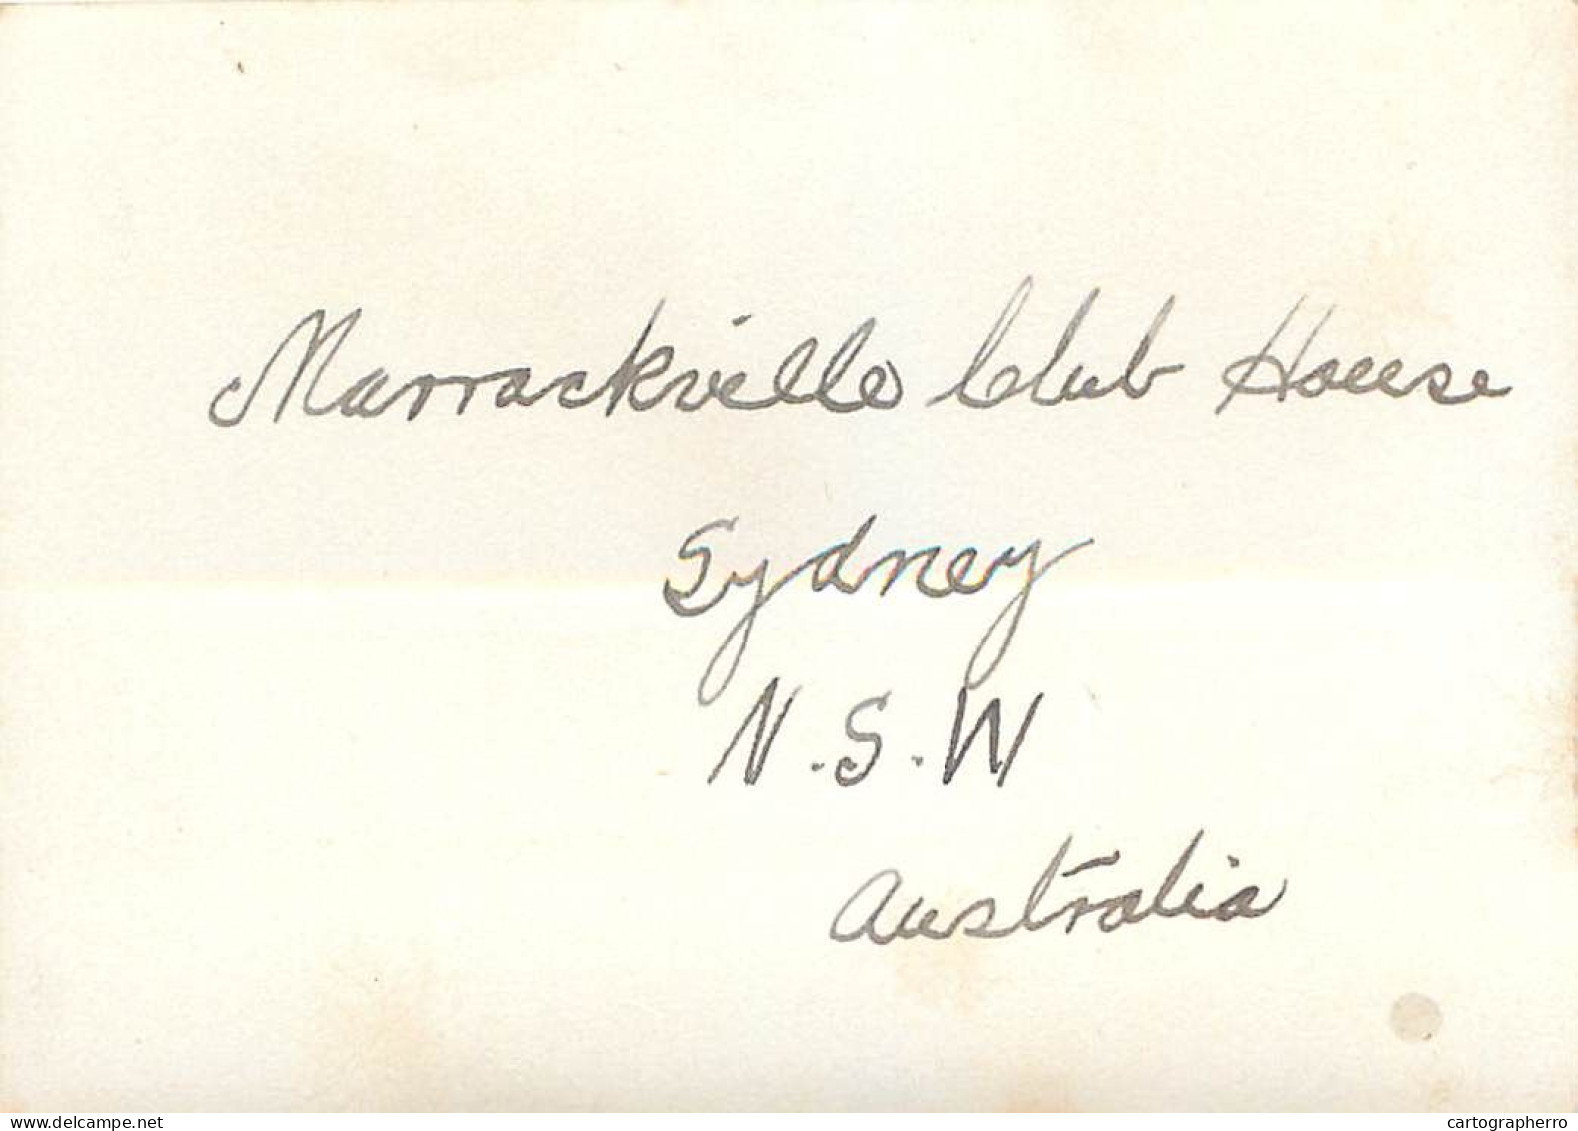 Marrackville Club House
Sydney
N.S.W
Australia
www.delcampe.net
cartographerro